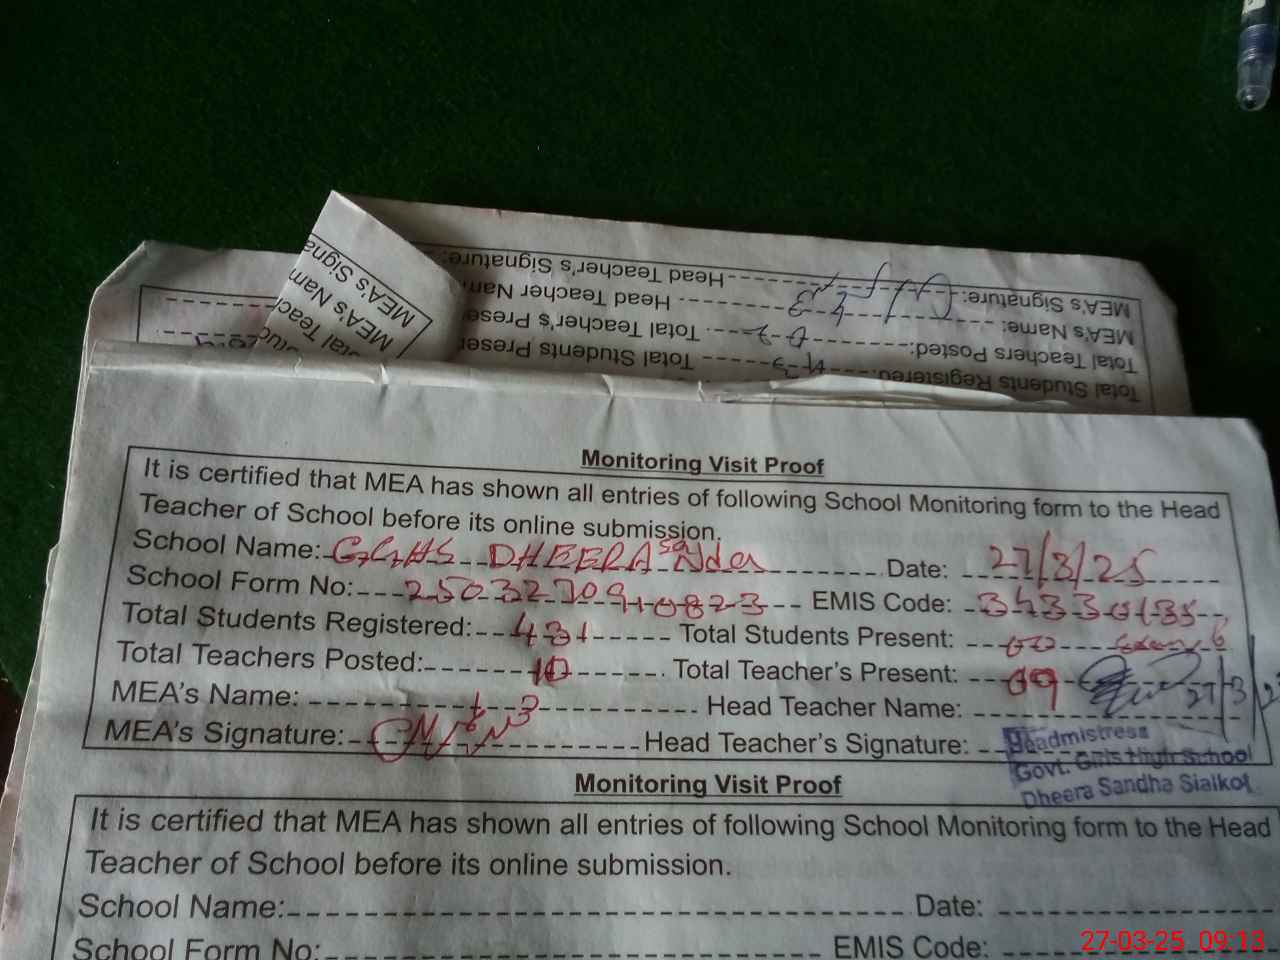 MEA's Signa
MEA's Nam
Total Teac
Head Teacher's Signature:
MEA's Signature:
Head Teacher Nam
MEA's Name:
Total Teacher's Prese
Total Teachers Posted:
Total Students Presen
Total Students Registered:
Monitoring Visit Proof
It is certified that MEA has shown all entries of following School Monitoring form to the Head
Teacher of School before its online submission.
School Name: GGHS DHEERA Sandha Date: 27/3/25
School Form No: 25032709 10823 EMIS Code: 34330135
Total Students Registered: 431 Total Students Present: 00
Total Teachers Posted: 10 Total Teacher's Present: 09
MEA's Name: Head Teacher Name: 27/3/2
MEA's Signature: Head Teacher's Signature:
Headmistress
Govt. Girls High School
Dheera Sandha Sialkot
Monitoring Visit Proof
It is certified that MEA has shown all entries of following School Monitoring form to the Head
Teacher of School before its online submission.
School Name: Date:
School Form No: EMIS Code:
27-03-25 09:13